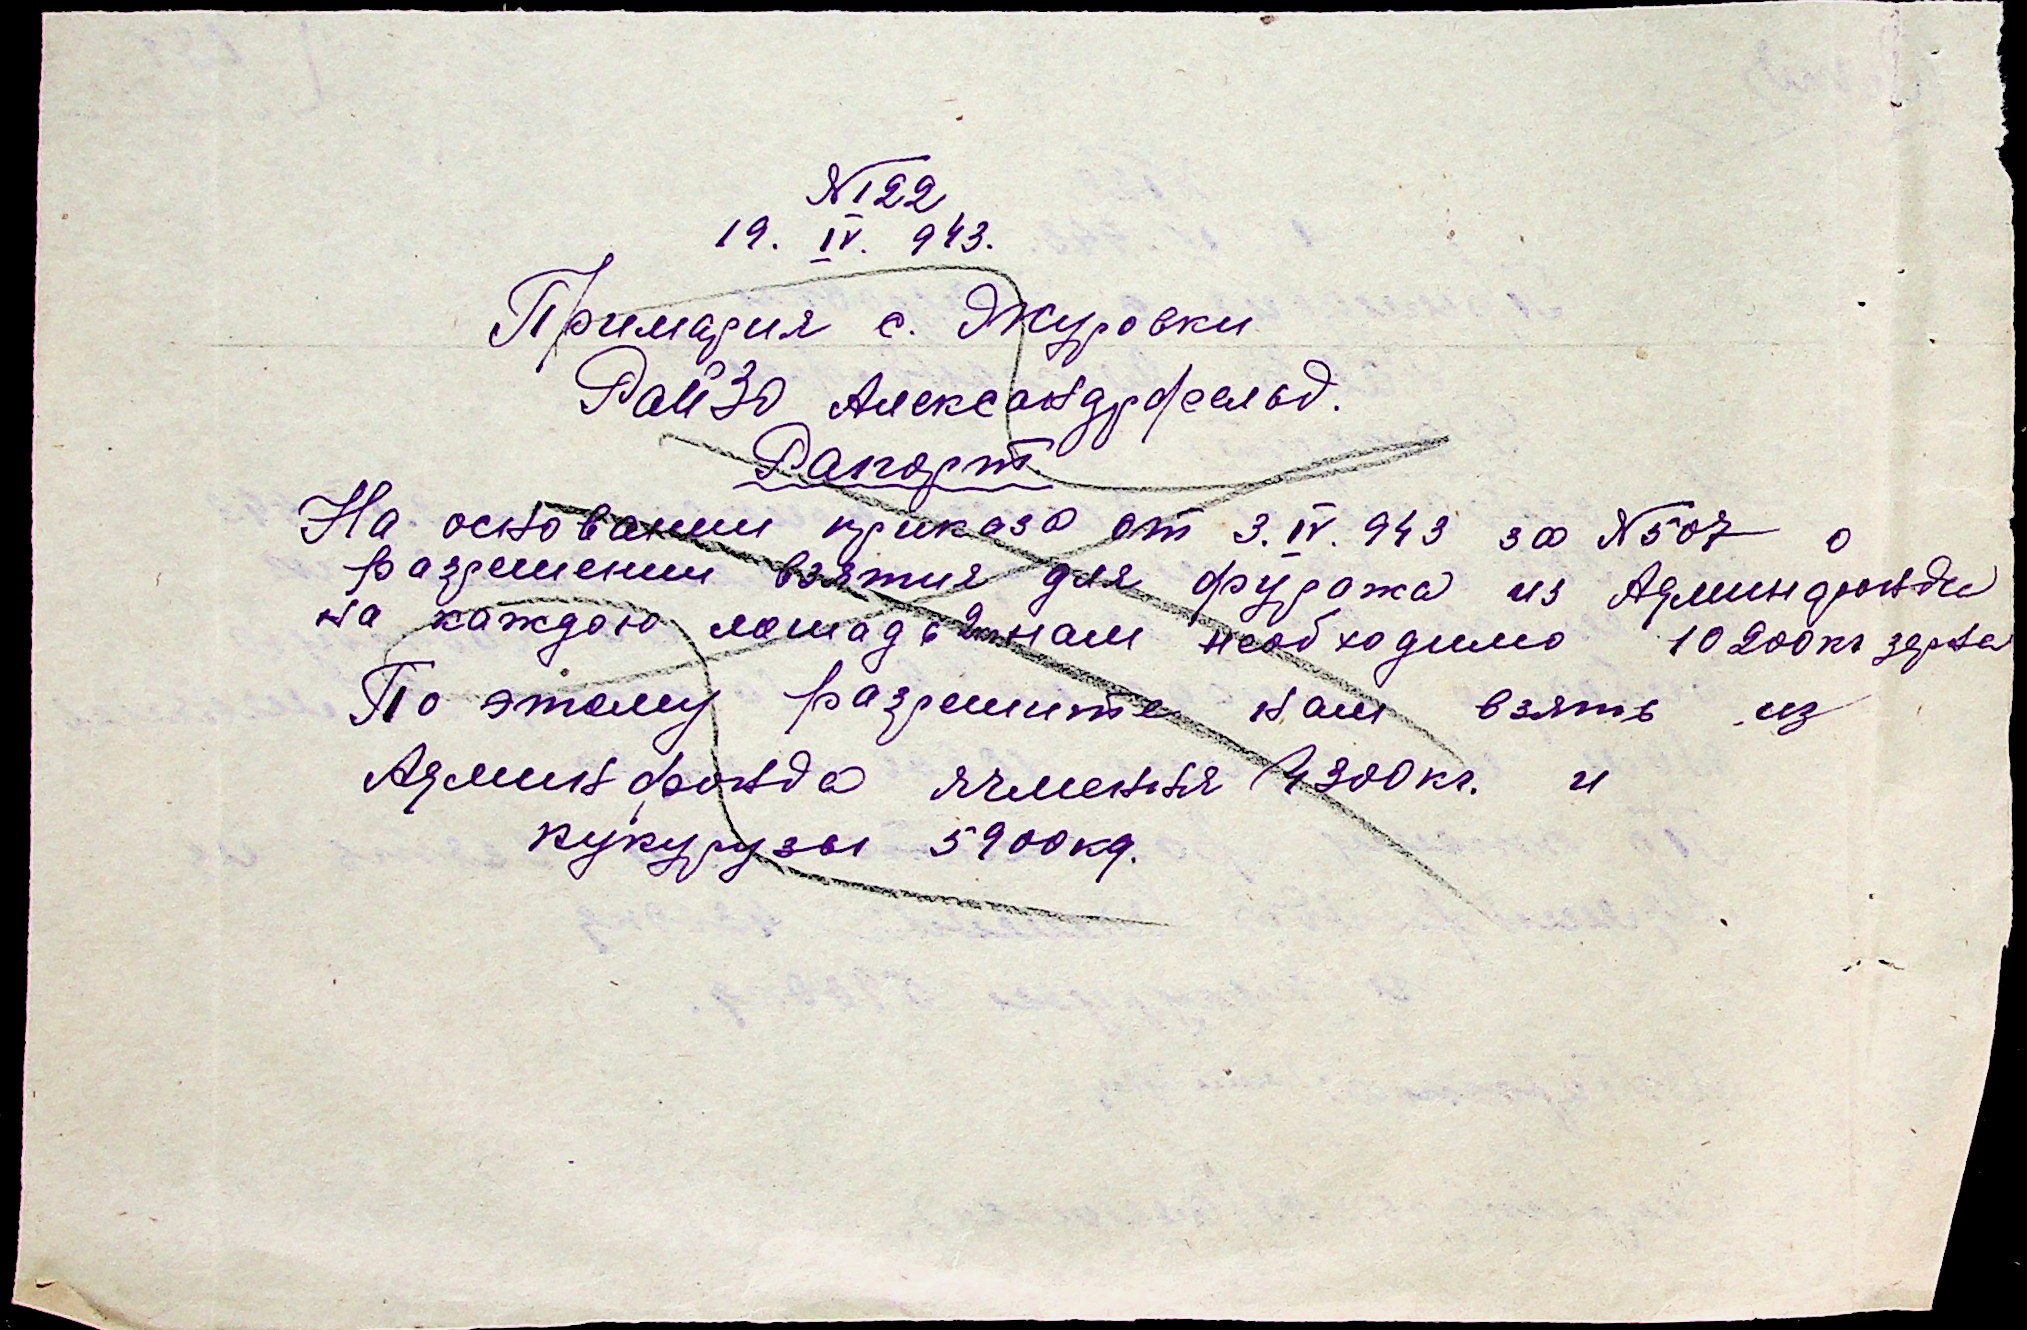 №122
19. IV. 943.
Примария с. Журовки
РайЗО Александрфельд.
Рапорт.
На основании приказа от 3.IV.943 за №507 о
разрешении взятия для фуража из Админфонда
на каждою лошадь нам необходимо 10200кг зерна
По этому разрешите нам взять из
Админ фонда ячмення 4300кг. и
кукурузы 5900кg.